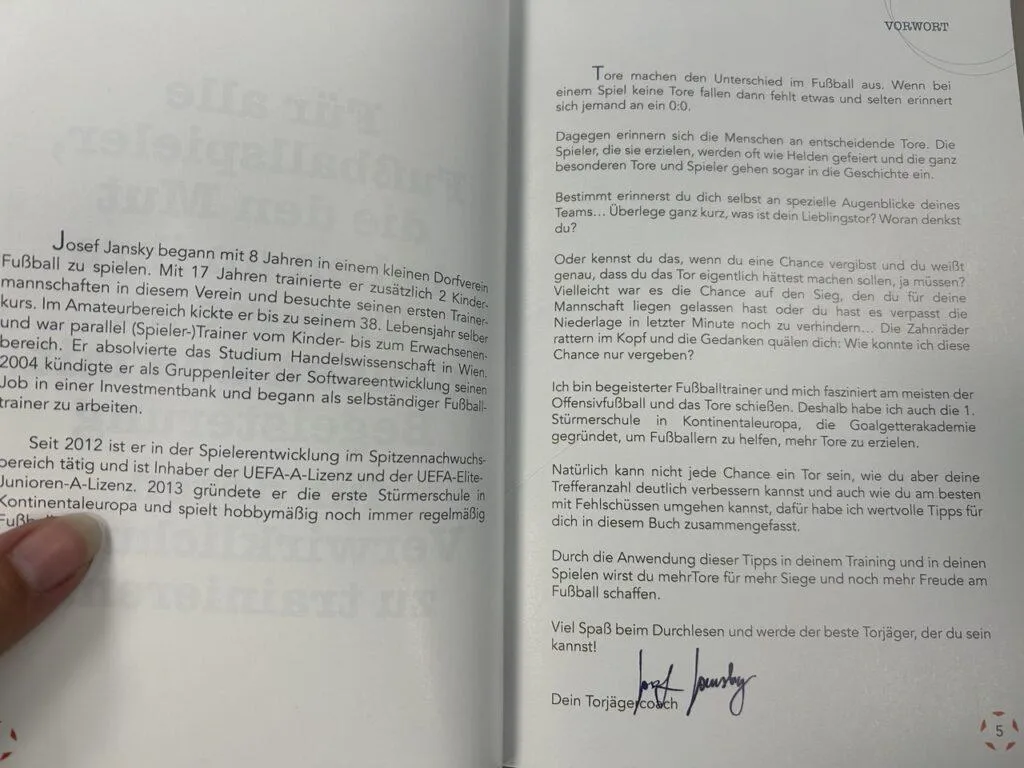 Josef Jansky begann mit 8 Jahren in einem kleinen Dorfverein
Fußball zu spielen. Mit 17 Jahren trainierte er zusätzlich 2 Kinder-
mannschaften in diesem Verein und besuchte seinen ersten Trainer-
kurs. Im Amateurbereich kickte er bis zu seinem 38. Lebensjahr selber
und war parallel (Spieler-)Trainer vom Kinder- bis zum Erwachsenen-
bereich. Er absolvierte das Studium Handelswissenschaft in Wien.
2004 kündigte er als Gruppenleiter der Softwareentwicklung seinen
Job in einer Investmentbank und begann als selbständiger Fußball-
trainer zu arbeiten.
Seit 2012 ist er in der Spielerentwicklung im Spitzennachwuchs-
bereich tätig und ist Inhaber der UEFA-A-Lizenz und der UEFA-Elite-
Junioren-A-Lizenz. 2013 gründete er die erste Stürmerschule in
Kontinentaleuropa und spielt hobbymäßig noch immer regelmäßig
VORWORT
Tore machen den Unterschied im Fußball aus. Wenn bei
einem Spiel keine Tore fallen dann fehlt etwas und selten erinnert
sich jemand an ein 0:0.
Dagegen erinnern sich die Menschen an entscheidende Tore. Die
Spieler, die sie erzielen, werden oft wie Helden gefeiert und die ganz
besonderen Tore und Spieler gehen sogar in die Geschichte ein.
Bestimmt erinnerst du dich selbst an spezielle Augenblicke deines
Teams... Überlege ganz kurz, was ist dein Lieblingstor? Woran denkst
du?
Oder kennst du das, wenn du eine Chance vergibst und du weißt
genau, dass du das Tor eigentlich hättest machen sollen, ja müssen?
Vielleicht war es die Chance auf den Sieg, den du für deine
Mannschaft liegen gelassen hast oder du hast es verpasst die
Niederlage in letzter Minute noch zu verhindern... Die Zahnräder
rattern im Kopf und die Gedanken quälen dich: Wie konnte ich diese
Chance nur vergeben?
Ich bin begeisterter Fußballtrainer und mich fasziniert am meisten der
Offensivfußball und das Tore schießen. Deshalb habe ich auch die 1.
Stürmerschule in Kontinentaleuropa, die Goalgetterakademie
gegründet, um Fußballern zu helfen, mehr Tore zu erzielen.
Natürlich kann nicht jede Chance ein Tor sein, wie du aber deine
Trefferanzahl deutlich verbessern kannst und auch wie du am besten
mit Fehlschüssen umgehen kannst, dafür habe ich wertvolle Tipps für
dich in diesem Buch zusammengefasst.
Durch die Anwendung dieser Tipps in deinem Training und in deinen
Spielen wirst du mehrTore für mehr Siege und noch mehr Freude am
Fußball schaffen.
Viel Spaß beim Durchlesen und werde der beste Torjäger, der du sein
kannst!
Josef Jansky
Dein Torjägercoach
5